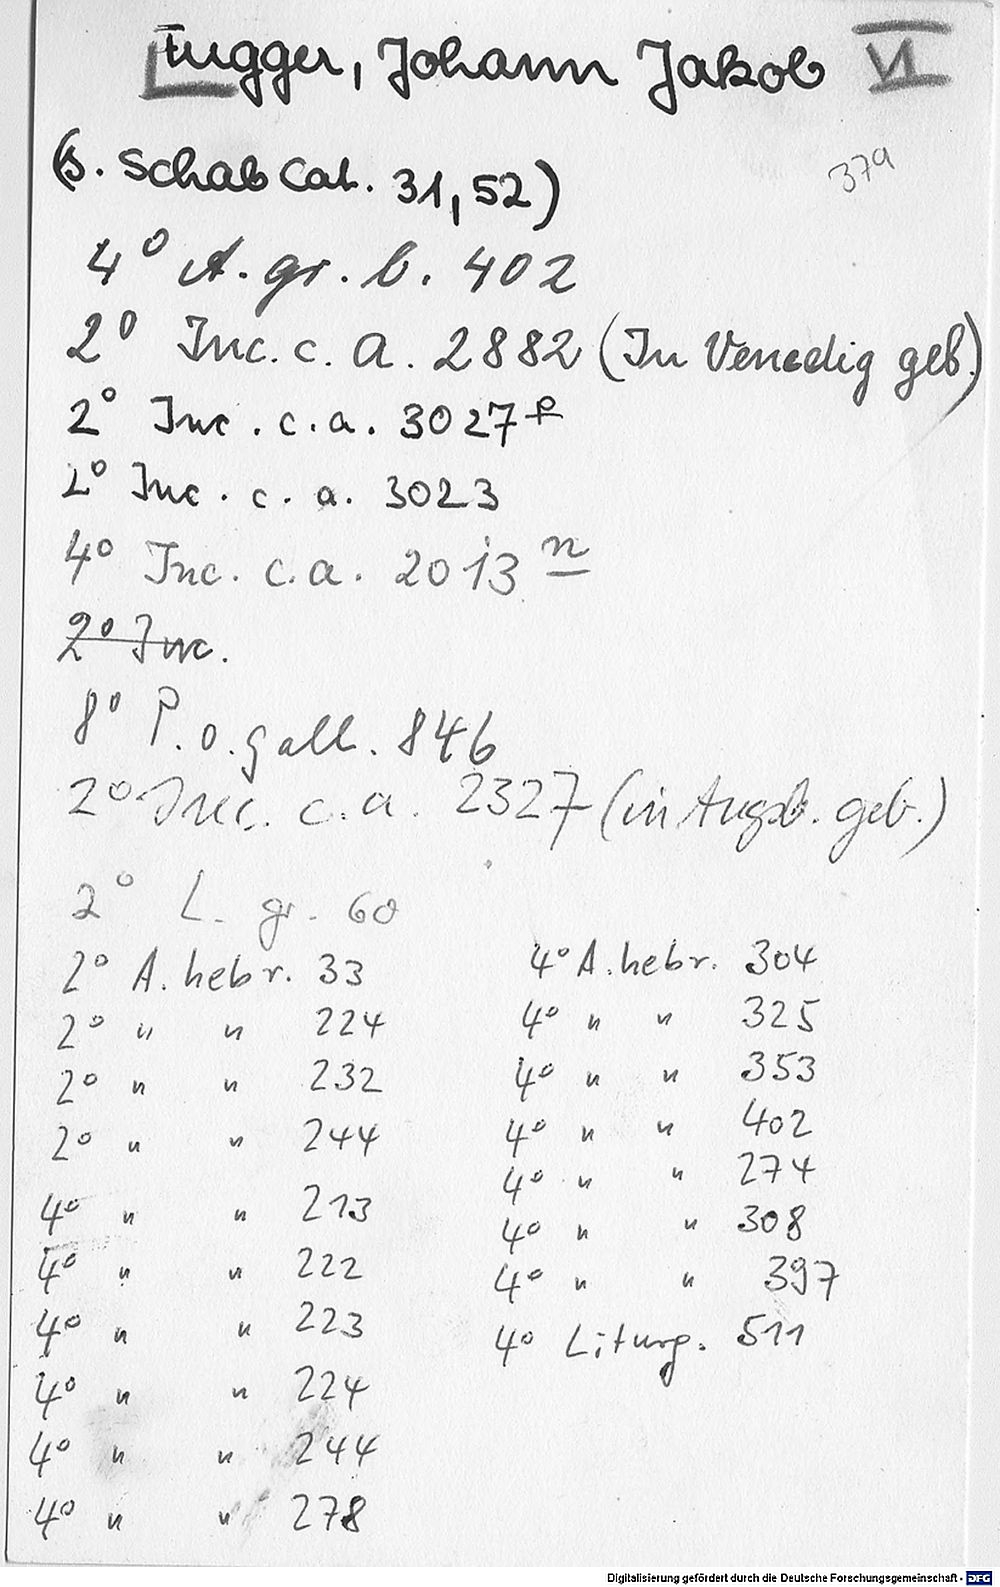 Fugger, Johann Jakob VI
(s. Schab Cat. 31,52)
379
4° A. gr. b. 402
2° Inc. c. a. 2882 (In Venedig geb.)
2° Inc. c. a. 3027 p
2° Inc. c. a. 3023
4° Inc. c. a. 2013 n
2° Inc.
8° P. o. gall. 846
2° Inc. c. a. 2327 (in Augsb. geb.)
2° L. gr. 60
2° A. hebr. 33
2° " " 224
2° " " 232
2° " " 244
4° " " 213
4° " " 222
4° " " 223
4° " " 224
4° " " 244
4° " " 278
4° A. hebr. 304
4° " " 325
4° " " 353
4° " " 402
4° " " 274
4° " " 308
4° " " 397
4° Liturg. 511
Digitalisierung gefördert durch die Deutsche Forschungsgemeinschaft - DFG